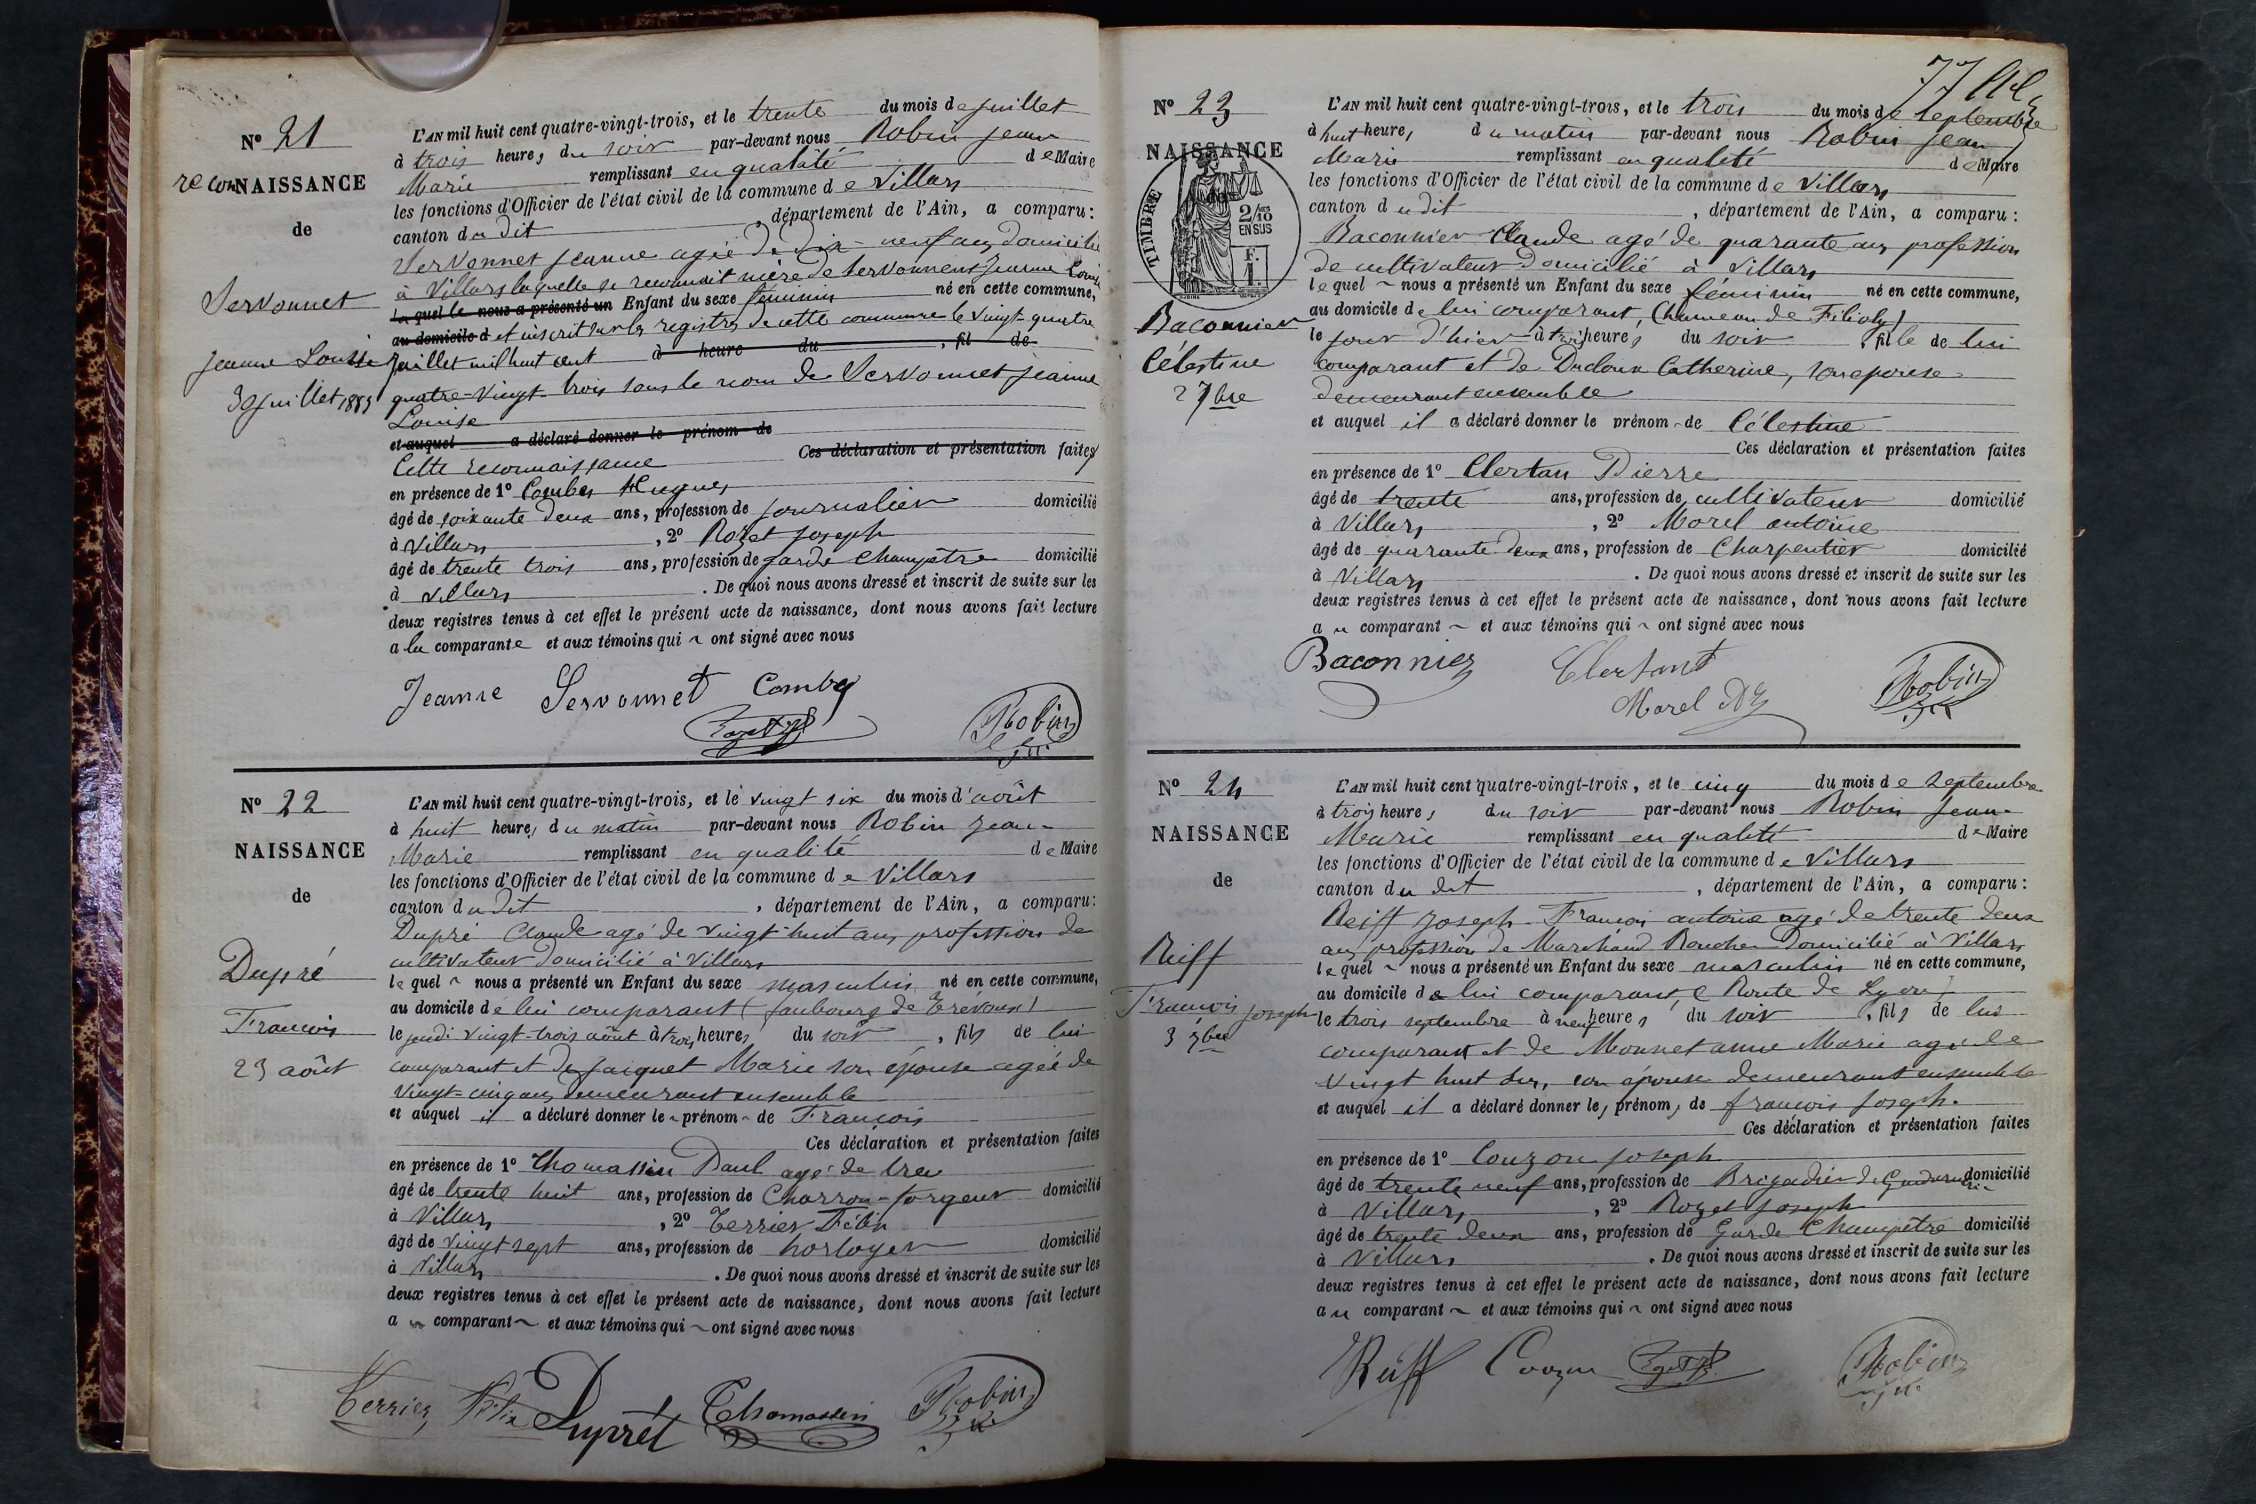 N° 21
reconNAISSANCE
de
Servonnet
Jeanne Louise
30 Juillet 1883
L'AN mil huit cent quatre-vingt-trois, et le trente du mois de Juillet
à trois heures, du soir par-devant nous Robin Jean
Marie remplissant en qualité de Maire
les fonctions d'Officier de l'état civil de la commune de Villars
canton du dit, département de l'Ain, a comparu:
Servonnet Jeanne agée de dix-neuf ans domiciliée
à Villars laquelle se reconnait mère de Servonnet Jeanne Louise
la quel le nous a présenté un Enfant du sexe féminin né en cette commune,
au domicile d et inscrit sur les registres de cette commune le vingt quatre
Juillet mil huit cent à heure du, fil de
quatre-vingt-trois sous le nom de Servonnet Jeanne
Louise
et auquel a déclaré donner le prénom de
Cette reconnaissance Ces déclaration et présentation faites
en présence de 1° Combes Hugues
âgé de soixante deux ans, profession de journalier domicilié
à Villars, 2° Rozet Joseph
âgé de trente trois ans, profession de garde champêtre domicilié
à Villars. De quoi nous avons dressé et inscrit de suite sur les
deux registres tenus à cet effet le présent acte de naissance, dont nous avons fait lecture
a la comparante et aux témoins qui ~ ont signé avec nous
Jeanne Servonnet Combes
Robin
N° 22
NAISSANCE
de
Dupré
François
23 août
L'AN mil huit cent quatre-vingt-trois, et le vingt six du mois d'août
à huit heures, du matin par-devant nous Robin Jean-
Marie remplissant en qualité de Maire
les fonctions d'Officier de l'état civil de la commune de Villars
canton du dit, département de l'Ain, a comparu:
Dupré Claude agé de vingt-huit ans, profession de
cultivateur domicilié à Villars
le quel ~ nous a présenté un Enfant du sexe masculin né en cette commune,
au domicile de lui comparant (faubourg de Trévoux)
le jeudi vingt-trois août à trois heures du soir, fils de lui
comparant et de Jacquet Marie son épouse agée de
vingt-cinq ans, demeurant ensemble
et auquel il a déclaré donner le ~ prénom ~ de François
Ces déclaration et présentation faites
en présence de 1° Thomassin Paul agé de tren
âgé de trente huit ans, profession de Charron-forgeur domicilié
à Villars, 2° Terrier Félix
âgé de vingt sept ans, profession de horloger domicilié
à Villars. De quoi nous avons dressé et inscrit de suite sur les
deux registres tenus à cet effet le présent acte de naissance, dont nous avons fait lecture
a u comparant ~ et aux témoins qui ~ ont signé avec nous
Terrier Félix Duprét Thomassin Robin
77
N° 23
NAISSANCE
TIMBRE
2/10 EN SUS
F. 1.
Baconnier
Célestine
2 7bre
L'AN mil huit cent quatre-vingt-trois, et le trois du mois de septembre
à huit heures, du matin par-devant nous Robin Jean
Marie remplissant en qualité de Maire
les fonctions d'Officier de l'état civil de la commune de Villars
canton du dit, département de l'Ain, a comparu:
Baconnier Claude agé de quarante ans, profession
de cultivateur domicilié à Villars
le quel ~ nous a présenté un Enfant du sexe féminin né en cette commune,
au domicile de lui comparant, (hameau de Filioly)
le jour d'hier à trois heures, du soir, fille de lui
comparant et de Ducloux Catherine, son epouse
demeurant ensemble
et auquel il a déclaré donner le prénom ~ de Célestine
Ces déclaration et présentation faites
en présence de 1° Clertan Pierre
âgé de trente ans, profession de cultivateur domicilié
à Villars, 2° Morel antoine
âgé de quarante deux ans, profession de Charpentier domicilié
à Villars. De quoi nous avons dressé et inscrit de suite sur les
deux registres tenus à cet effet le présent acte de naissance, dont nous avons fait lecture
a u comparant ~ et aux témoins qui ~ ont signé avec nous
Baconnier Clertant Robin
Morel
N° 24
NAISSANCE
de
Reiff
François Joseph
3 7bre
L'AN mil huit cent quatre-vingt-trois, et le cinq du mois de septembre
à trois heures, du soir par-devant nous Robin Jean-
Marie remplissant en qualité de Maire
les fonctions d'Officier de l'état civil de la commune de Villars
canton du dit, département de l'Ain, a comparu:
Reiff Joseph François antoine agé de trente deux
ans, profession de Marchand Boucher Domicilié à Villars
le quel ~ nous a présenté un Enfant du sexe masculin né en cette commune,
au domicile de lui comparant, (Route de Lyon)
le trois septembre à neuf heures, du soir, fils de lui
comparant et de Monnet anne Marie agée de
vingt huit ans, son épouse demeurant ensemble
et auquel il a déclaré donner les prénoms de françois Joseph.
Ces déclaration et présentation faites
en présence de 1° Couzon Joseph
âgé de trente neuf ans, profession de Brigadier de Gendarmerie domicilié
à Villars, 2° Rozet Joseph
âgé de trente deux ans, profession de Garde Champêtre domicilié
à Villars. De quoi nous avons dressé et inscrit de suite sur les
deux registres tenus à cet effet le présent acte de naissance, dont nous avons fait lecture
a u comparant ~ et aux témoins qui ~ ont signé avec nous
Reiff Couzon Robin